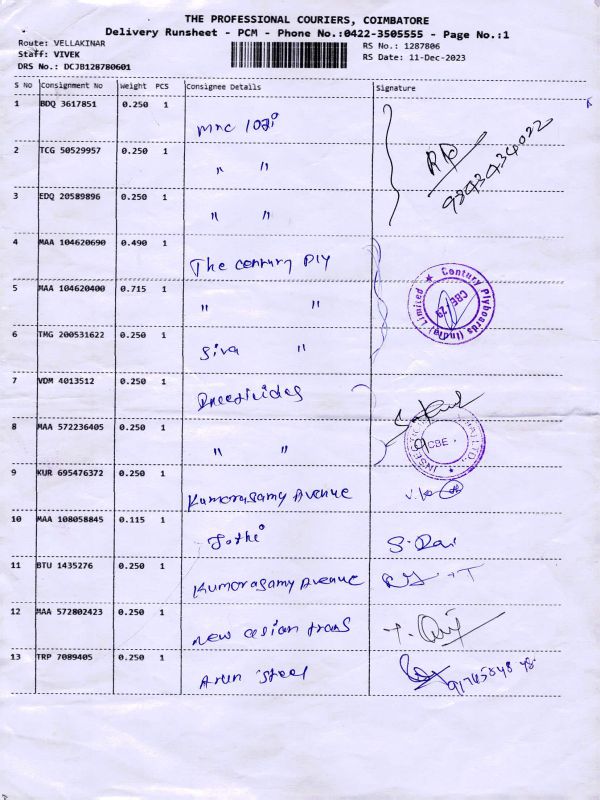 THE PROFESSIONAL COURIERS, COIMBATORE
Delivery Runsheet - PCM - Phone No.:0422-3505555 - Page No.:1
Route: VELLAKINAR
RS No.: 1287806
Staff: VIVEK
RS Date: 11-Dec-2023
DRS No.: DCJB128780601
S No Consignment No Weight PCS Consignee Details Signature
1 BDQ 3617851 0.250 1
2 TCG 50529957 0.250 1 " "
3 EDQ 20589896 0.250 1 " "
9843434022
4 MAA 104620690 0.490 1 The century Ply
5 MAA 104620400 0.715 1 " "
Century Plyboards (India) Limited ★
CBE-29
6 TMG 200531622 0.250 1 Siva "
7 VDM 4013512 0.250 1
8 MAA 572236405 0.250 1 " "
CBE
9 KUR 695476372 0.250 1 Kumarasamy Avenue
10 MAA 108058845 0.115 1 Jothi S. Rai
11 BTU 1435276 0.250 1 Kumarasamy Avenue
12 MAA 572802423 0.250 1 new asian trans
13 TRP 7089405 0.250 1 Arun steel